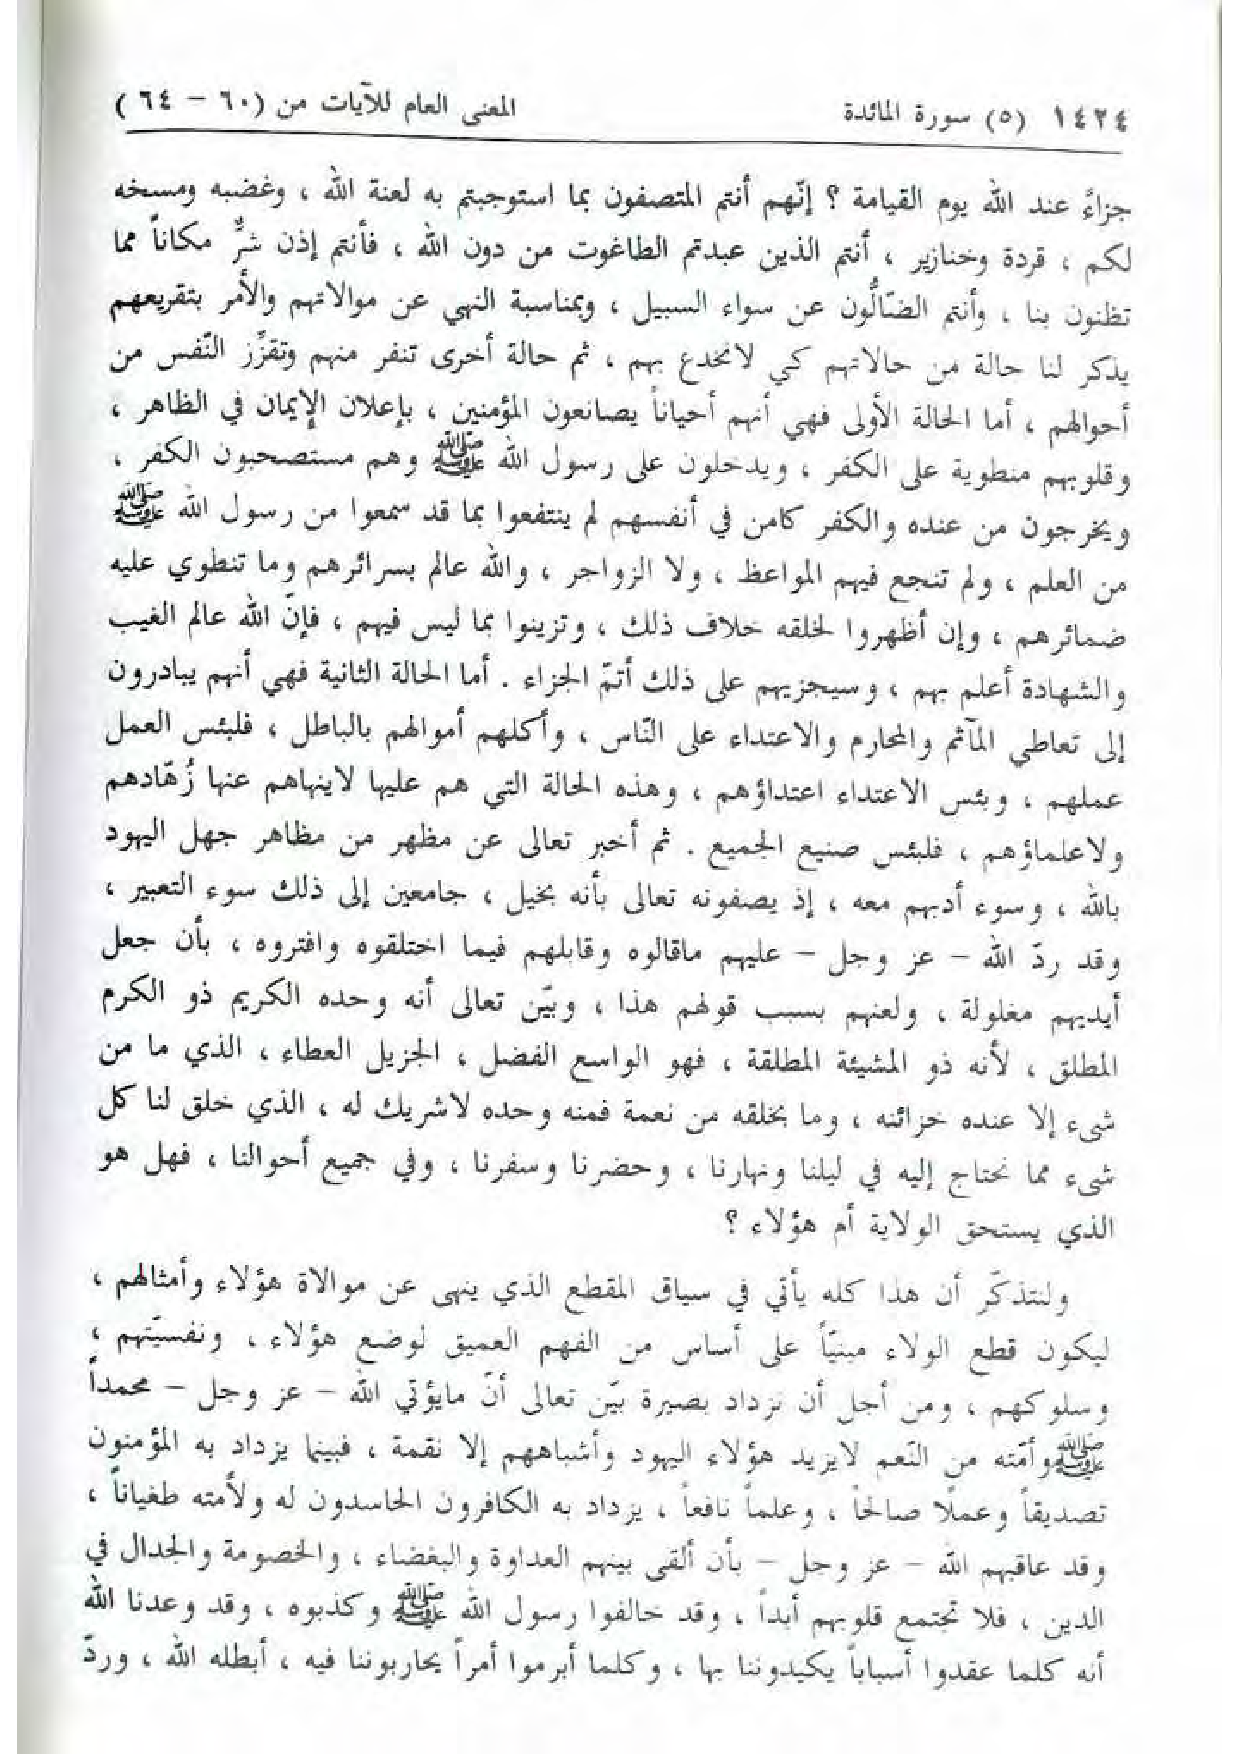 ١٤٢٤ (٥) سورة المائدة المعنى العام للآيات من (٦٠ – ٦٤)
جزاءً عند الله يوم القيامة ؟ إنّهم أنتم المتصفون بما استوجبتم به لعنة الله ، وغضبه ومسخه
لكم ، قردة وخنازير ، أنتم الذين عبدتم الطاغوت من دون الله ، فأنتم إذن شرٌّ مكاناً مما
تظنون بنا ، وأنتم الضّالُّون عن سواء السبيل ، وبمناسبة النهي عن موالاتهم والأمر بتقريعهم
يذكر لنا حالة من حالاتهم كي لانخدع بهم ، ثم حالة أخرى تنفر منهم وتقزِّز النّفس من
أحوالهم ، أما الحالة الأولى فهي أنهم أحياناً يصانعون المؤمنين ، بإعلان الإيمان في الظاهر ،
وقلوبهم منطوية على الكفر ، ويدخلون على رسول الله ﷺ وهم مستصحبون الكفر ،
ويخرجون من عنده والكفر كامن في أنفسهم لم ينتفعوا بما قد سمعوا من رسول الله ﷺ
من العلم ، ولم تنجع فيهم المواعظ ، ولا الزواجر ، والله عالم بسرائرهم وما تنطوي عليه
ضمائرهم ، وإن أظهروا لخلقه خلاف ذلك ، وتزينوا بما ليس فيهم ، فإنّ الله عالم الغيب
والشهادة أعلم بهم ، وسيجزيهم على ذلك أتمّ الجزاء . أما الحالة الثانية فهي أنهم يبادرون
إلى تعاطي المآثم والمحارم والاعتداء على النّاس ، وأكلهم أموالهم بالباطل ، فلبئس العمل
عملهم ، وبئس الاعتداء اعتداؤهم ، وهذه الحالة التي هم عليها لاينهاهم عنها زُهّادهم
ولاعلماؤهم ، فلبئس صنيع الجميع . ثم أخبر تعالى عن مظهر من مظاهر جهل اليهود
بالله ، وسوء أدبهم معه ، إذ يصفونه تعالى بأنه بخيل ، جامعين إلى ذلك سوء التعبير ،
وقد ردّ الله – عز وجل – عليهم ماقالوه وقابلهم فيما اختلقوه وافتروه ، بأن جعل
أيديهم مغلولة ، ولعنهم بسبب قولهم هذا ، وبيّن تعالى أنه وحده الكريم ذو الكرم
المطلق ، لأنه ذو المشيئة المطلقة ، فهو الواسع الفضل ، الجزيل العطاء ، الذي ما من
شيء إلا عنده خزائنه ، وما بخلقه من نعمة فمنه وحده لاشريك له ، الذي خلق لنا كل
شيء مما نحتاج إليه في ليلنا ونهارنا ، وحضرنا وسفرنا ، وفي جميع أحوالنا ، فهل هو
الذي يستحق الولاية أم هؤلاء ؟
ولنتذكّر أن هذا كله يأتي في سياق المقطع الذي ينهى عن موالاة هؤلاء وأمثالهم ،
ليكون قطع الولاء مبنيّاً على أساس من الفهم العميق لوضع هؤلاء ، ونفسيّتهم ،
وسلوكهم ، ومن أجل أن نزداد بصيرة بيّن تعالى أنّ مايؤتي الله – عز وجل – محمداً
ﷺ وأمّته من النّعم لايزيد هؤلاء اليهود وأشباههم إلا نقمة ، فبينما يزداد به المؤمنون
تصديقاً وعملًا صالحاً ، وعلماً نافعاً ، يزداد به الكافرون الحاسدون له ولأمته طغياناً ،
وقد عاقبهم الله – عز وجل – بأن ألقى بينهم العداوة والبغضاء ، والخصومة والجدال في
الدين ، فلا تجتمع قلوبهم أبداً ، وقد خالفوا رسول الله ﷺ وكذبوه ، وقد وعدنا الله
أنه كلما عقدوا أسباباً يكيدوننا بها ، وكلما أبرموا أمراً يحاربوننا فيه ، أبطله الله ، وردّ